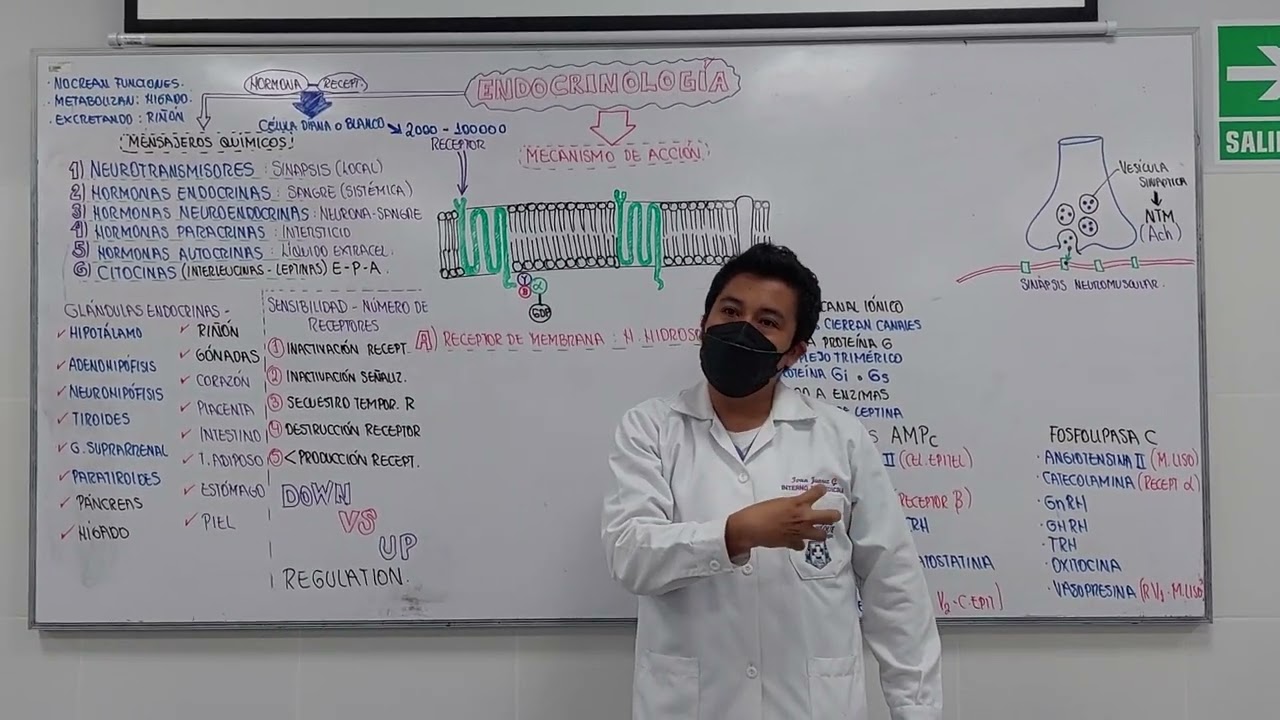 ENDOCRINOLOGÍA
· NO CREAN FUNCIONES.
· METABOLIZAN: HIGADO.
· EXCRETANDO: RIÑÓN
HORMONA - RECEPT.
CÉLULA DIANA O BLANCO
2000 - 100000
RECEPTOR
MENSAJEROS QUÍMICOS
1) NEUROTRANSMISORES : SINAPSIS (LOCAL)
2) HORMONAS ENDOCRINAS : SANGRE (SISTÉMICA)
3) HORMONAS NEUROENDOCRINAS: NEURONA-SANGRE
4) HORMONAS PARACRINAS: INTERSTICIO
5) HORMONAS AUTOCRINAS: LÍQUIDO EXTRACEL.
6) CITOCINAS (INTERLEUCINAS - LEPTINAS) E-P-A.
GLÁNDULAS ENDOCRINAS -
✓ HIPOTÁLAMO
✓ ADENOHIPÓFISIS
✓ NEUROHIPÓFISIS
✓ TIROIDES
✓ G. SUPRARRENAL
✓ PARATIROIDES
✓ PÁNCREAS
✓ HÍGADO
✓ RIÑÓN
✓ GÓNADAS
✓ CORAZÓN
✓ PLACENTA
✓ INTESTINO
✓ T. ADIPOSO
✓ ESTÓMAGO
✓ PIEL
SENSIBILIDAD - NÚMERO DE
RECEPTORES
1 INACTIVACIÓN RECEPT.
2 INACTIVACIÓN SEÑALIZ.
3 SECUESTRO TEMPOR. R
4 DESTRUCCIÓN RECEPTOR
5 < PRODUCCIÓN RECEPT.
DOWN
VS
UP
REGULATION.
MECANISMO DE ACCIÓN.
γ
β
α
GDP
A) RECEPTOR DE MEMBRANA : H. HIDROS
CANAL IÓNICO
CIERRAN CANALES
PROTEÍNA G
TRIMÉRICO
Gi o Gs
A ENZIMAS
DE LEPTINA
AMPc
II (CEL. EPITEL)
RECEPTOR β)
V2 - C. EPIT)
FOSFOLIPASA C
· ANGIOTENSINA II (M. LISO)
· CATECOLAMINA (RECEPT α)
· GnRH
· GHRH
· TRH
· OXITOCINA
· VASOPRESINA (R V1 - M. LISO)
VESÍCULA
SINÁPTICA
NTM
(Ach)
SINÁPSIS NEUROMUSCULAR.
SALI